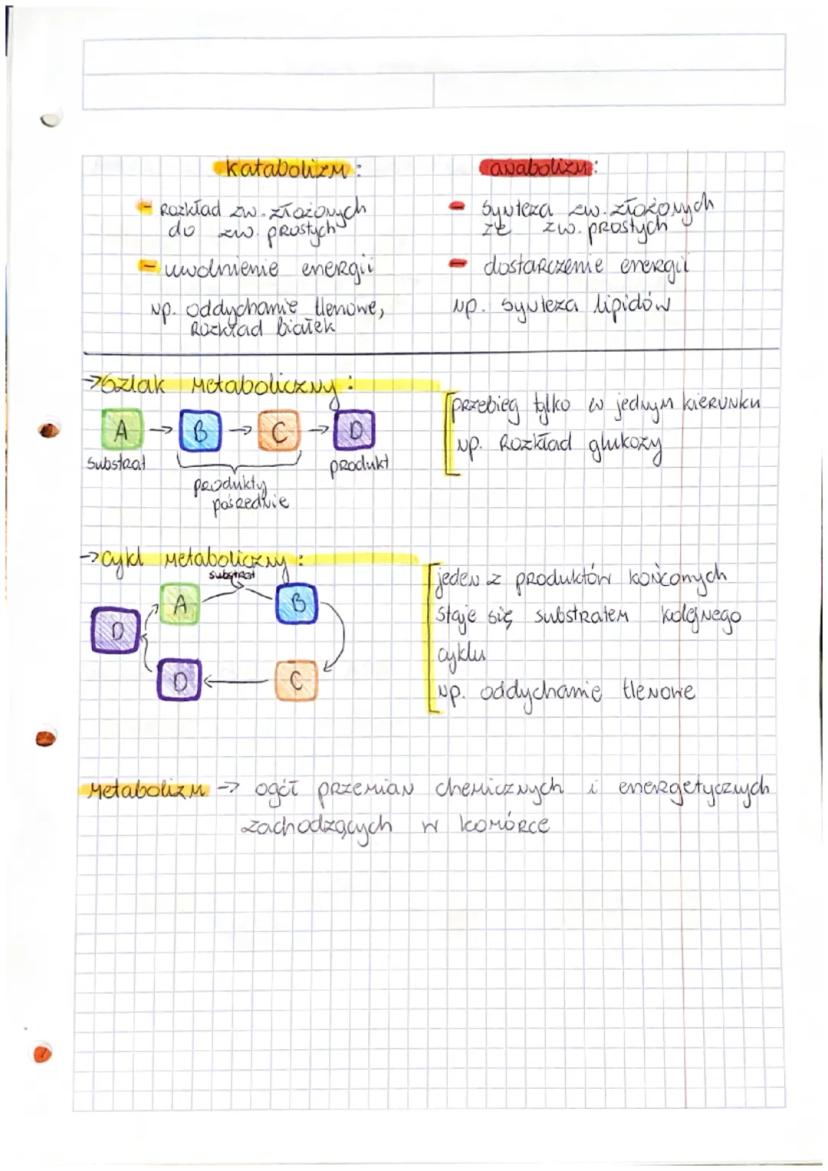 katabolizm:
- Rozkład zw. złożonych
do zw. prostych
- uwolnienie energii
np. oddychanie tlenowe,
Rozkład białek
anabolizm:
- Synteza zw. złożonych
ze zw. prostych
- dostarczenie energii
np. synteza lipidów
→ Szlak metaboliczny:
A → B → C → D
Substrat
produkt
produkty
pośrednie
przebieg tylko w jednym kierunku
np. Rozkład glukozy
→ cykl metaboliczny:
substrat
A
B
D
D
C
jeden z produktów końconych
staje się substratem kolejnego
cyklu
np. oddychanie tlenowe
Metabolizm → ogół przemian chemicznych i energetycznych
zachodzących w komórce